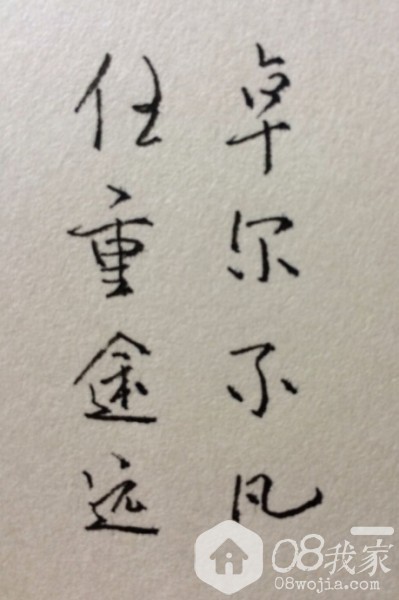 卓尔不凡
任重途远
08我家
08wojia.com